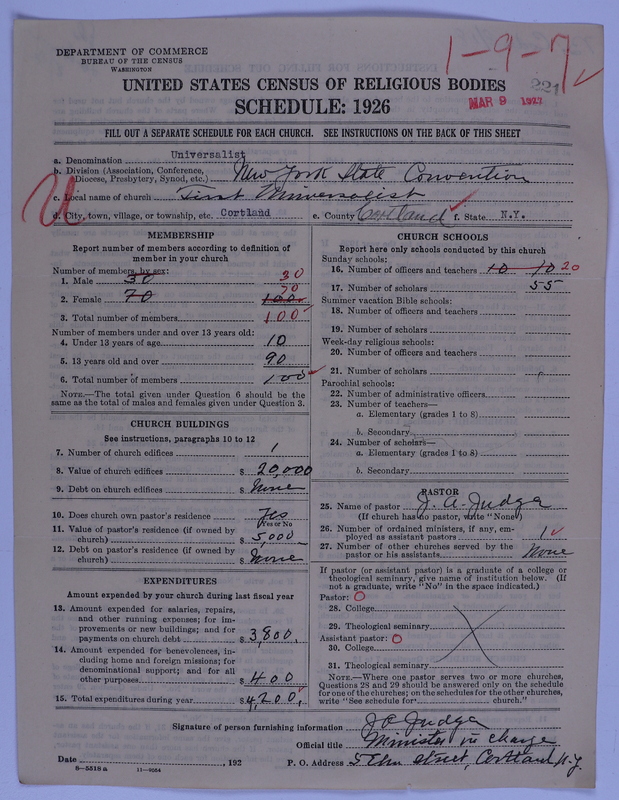 DEPARTMENT OF COMMERCE
BUREAU OF THE CENSUS
WASHINGTON
1-9-7
UNITED STATES CENSUS OF RELIGIOUS BODIES
221
SCHEDULE: 1926
MAR 9 1927
FILL OUT A SEPARATE SCHEDULE FOR EACH CHURCH. SEE INSTRUCTIONS ON THE BACK OF THIS SHEET
a. Denomination Universalist
b. Division (Association, Conference, Diocese, Presbytery, Synod, etc.) New York State Convention
c. Local name of church First Universalist
d. City, town, village, or township, etc. Cortland e. County Cortland f. State N.Y.
U
MEMBERSHIP
Report number of members according to definition of
member in your church
Number of members by sex:
1. Male 30 30
2. Female 70 100 70
3. Total number of members 100
Number of members under and over 13 years old:
4. Under 13 years of age 10
5. 13 years old and over 90
6. Total number of members 100
NOTE.—The total given under Question 6 should be
same as the total of males and females given under Question 3.
CHURCH BUILDINGS
See instructions, paragraphs 10 to 12
7. Number of church edifices 1
8. Value of church edifices $ 20,000
9. Debt on church edifices $ None
10. Does church own pastor's residence Yes
(Yes or No)
11. Value of pastor's residence (if owned by
church) $ 5,000
12. Debt on pastor's residence (if owned by
church) $ None
EXPENDITURES
Amount expended by your church during last fiscal year
13. Amount expended for salaries, repairs,
and other running expenses; for im-
provements or new buildings; and for
payments on church debt $ 3,800
14. Amount expended for benevolences, in-
cluding home and foreign missions; for
denominational support; and for all
other purposes $ 400
15. Total expenditures during year $ 4,200
CHURCH SCHOOLS
Report here only schools conducted by this church
Sunday schools:
16. Number of officers and teachers 10 10 20
17. Number of scholars 55
Summer vacation Bible schools:
18. Number of officers and teachers
19. Number of scholars
Week-day religious schools:
20. Number of officers and teachers
21. Number of scholars
Parochial schools:
22. Number of administrative officers
23. Number of teachers—
a. Elementary (grades 1 to 8)
b. Secondary
24. Number of scholars—
a. Elementary (grades 1 to 8)
b. Secondary
PASTOR
25. Name of pastor J. A. Judge
(If church has no pastor, write "None")
26. Number of ordained ministers, if any, em-
ployed as assistant pastors 1
27. Number of other churches served by the
pastor or his assistants None
If pastor (or assistant pastor) is a graduate of a college or
theological seminary, give name of institution below. (If
not a graduate, write "No" in the space indicated.)
Pastor: O
28. College
29. Theological seminary
Assistant pastor: O
30. College
31. Theological seminary
NOTE.—Where one pastor serves two or more churches,
Questions 28 and 29 should be answered only on the schedule
for one of the churches; on the schedules for the other churches,
write "See schedule for church."
Signature of person furnishing information J A Judge
Official title Minister in charge
Date , 192 P. O. Address 5 Elm Street, Cortland, N.Y.
6-5518a 11-9054